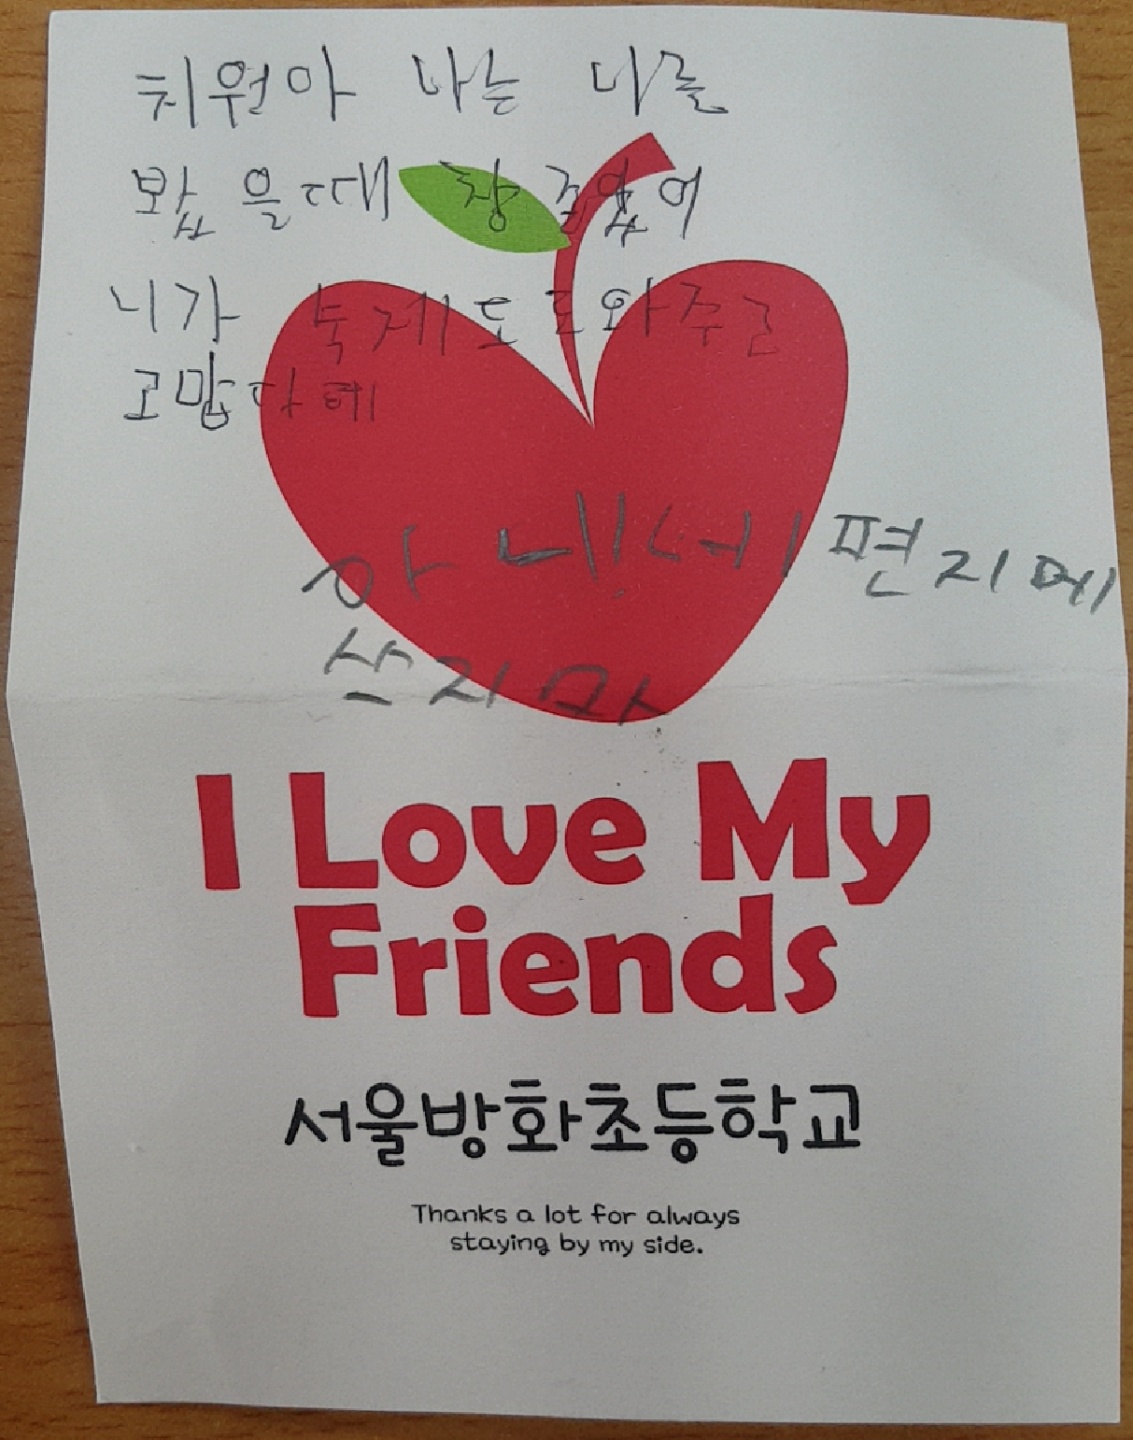 치원아 나는 니를
봤을때 참 좋았어
니가 숙제도 도와주고
고맙다
아
편지
쓰지마
I Love My
Friends
서울방화초등학교
Thanks a lot for always
staying by my side.